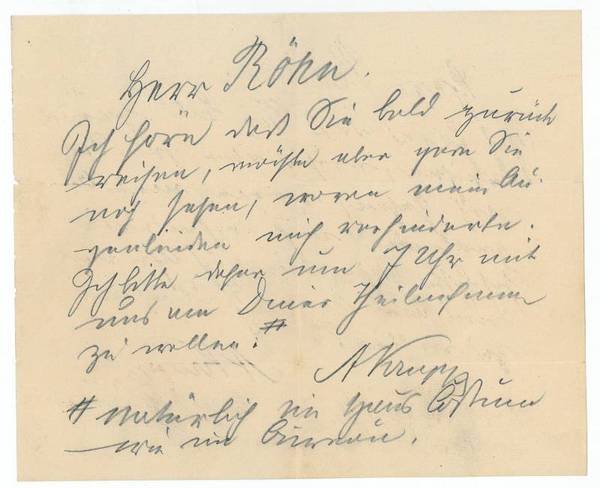 Herr Röhn.
Ich höre daß Sie bald zurück
reisen, möchte aber gern Sie
noch sehen, woran mein Au-
genleiden mich verhinderte.
Ich bitte daher um 7 Uhr mit
uns am Diner Theilnehmen
zu wollen. #
AKrupp
# natürlich im Haus Costum
wie im Bureau.